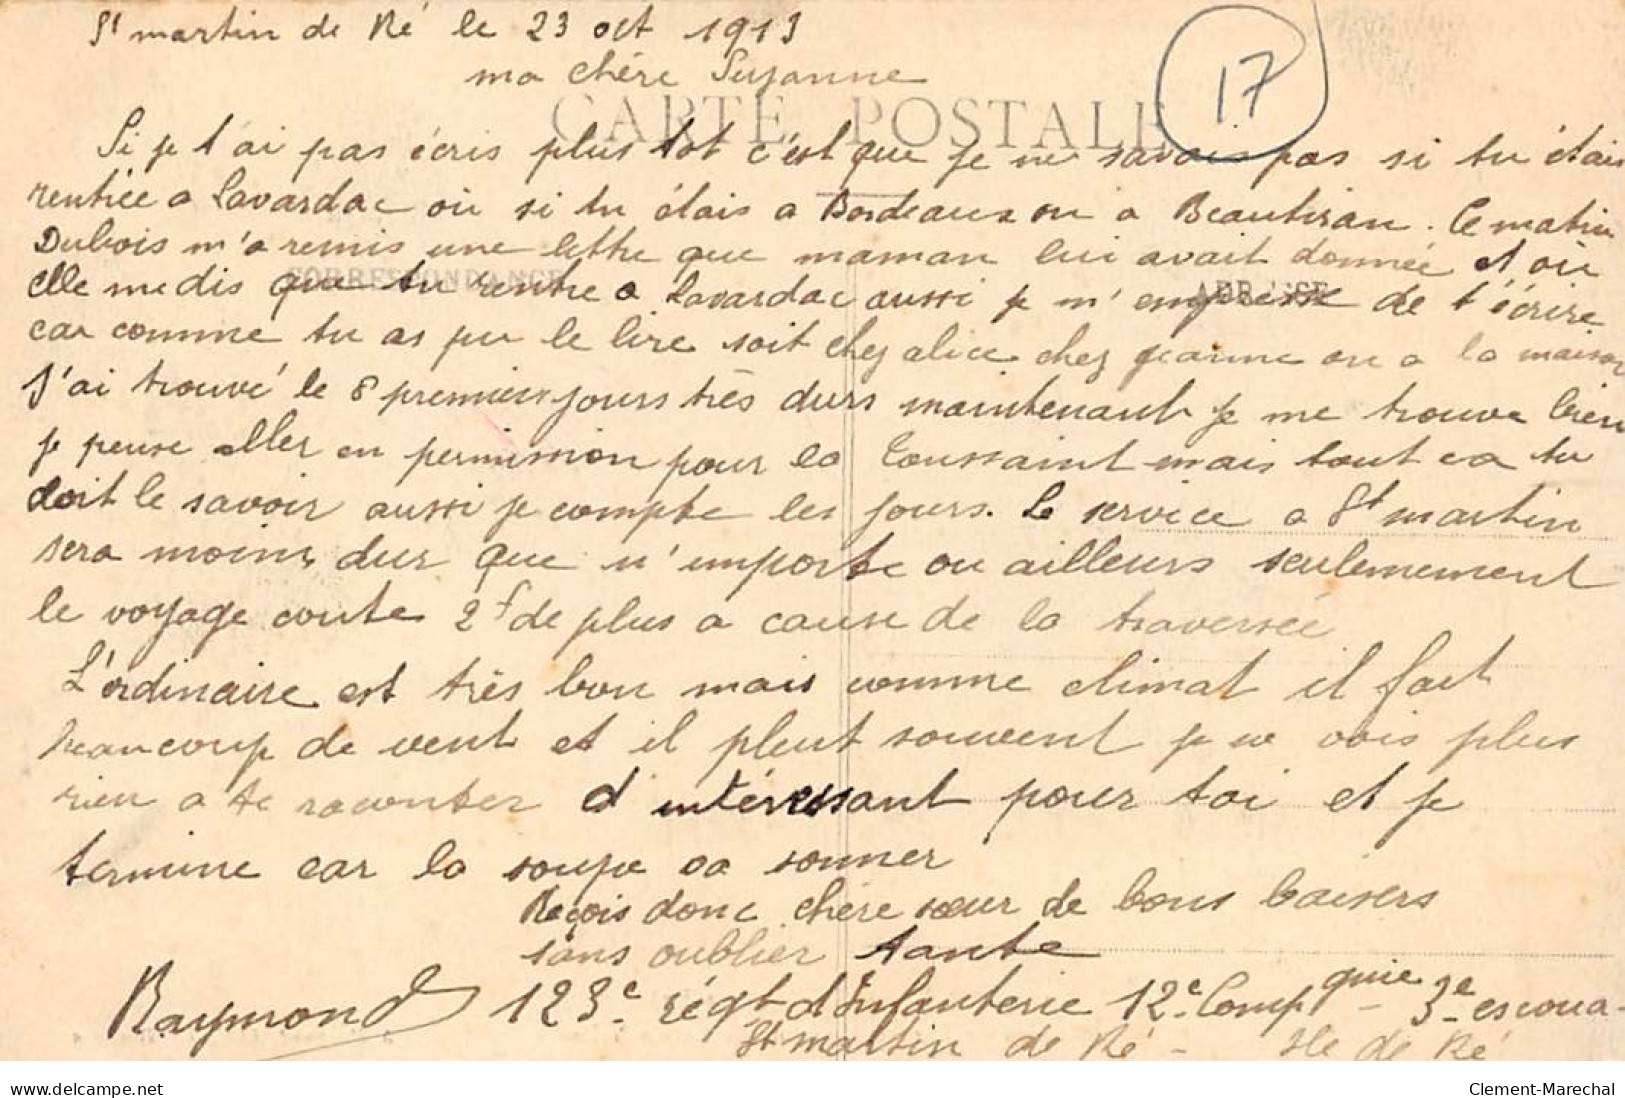 St martin de Ré le 23 oct 1913
17
ma chère Suzanne
CARTE POSTALE
Si je t'ai pas écris plus tot c'est que je ne savais pas si tu étais
rentrée a Lavardac ou si tu étais a Bordeaux ou a Beautiran. Ce matin
Dubois m'a remis une lettre que maman lui avait donnée et ou
CORRESPONDANCE
ADRESSE
elle me dis que tu rentre a Lavardac aussi je m'empresse de t'écrire
car comme tu as pu le lire soit chez alice chez jeanne ou a la maison
J'ai trouvé le 8 premiers jours très durs maintenant je me trouve bien
je pense aller en permission pour la Toussaint mais tout ca tu
doit le savoir aussi je compte les jours. Le service a St martin
sera moins dur que n'importe ou ailleurs seulemement
le voyage coute 2f de plus a cause de la traversée
L'ordinaire est très bon mais comme climat il fait
beaucoup de vent et il pleut souvent je ne vois plus
rien a te raconter d'intéressant pour toi et je
termine car la soupe va sonner
Reçois donc chère sœur de bons baisers
sans oublier tante
Raymond 123e régt d'Infanterie 12e Compgnie 3e escoua-
St martin de Ré - Ile de Ré
www.delcampe.net
Clement-Marechal